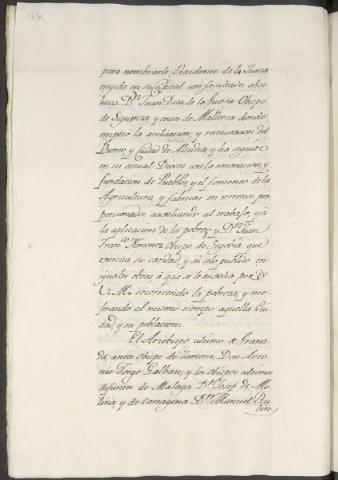 para nombrarle Presidente de la Junta
erigida en su Capital con facultades abso-
lutas. Dn. Juan Diaz de la Guerra Obispo
de Siguenza y antes de Mallorca donde
empezó la auxiliacion, y restauracion del
Puerto, y Ciudad de Alcudia, y ha seguido
en su actual Diocesi con la renovacion, y
fundacion de Pueblos, y el fomento de la
Agricultura, y fabricas en terrenos pro-
porcionados auxiliando al trabajo, y á
la aplicacion de los pobres; y Dn. Juan
Franco. Ximenez Obispo de Segovia que
exercita su caridad, y su celo publico en
iguales obras á que se le auxilia por
V. M. socorriendo la pobreza, y me-
jorando al mismo tiempo aquella Ciu-
dad, y su poblacion.
El Arzobispo ultimo de Grana-
da, antes obispo de Zamora, Don Anto-
nio Jorge Galban; y los obispos ultimos
difuntos de Malaga Dn. Josef de Mo-
lina, y de Cartagena Dn. Manuel Ru-
bin